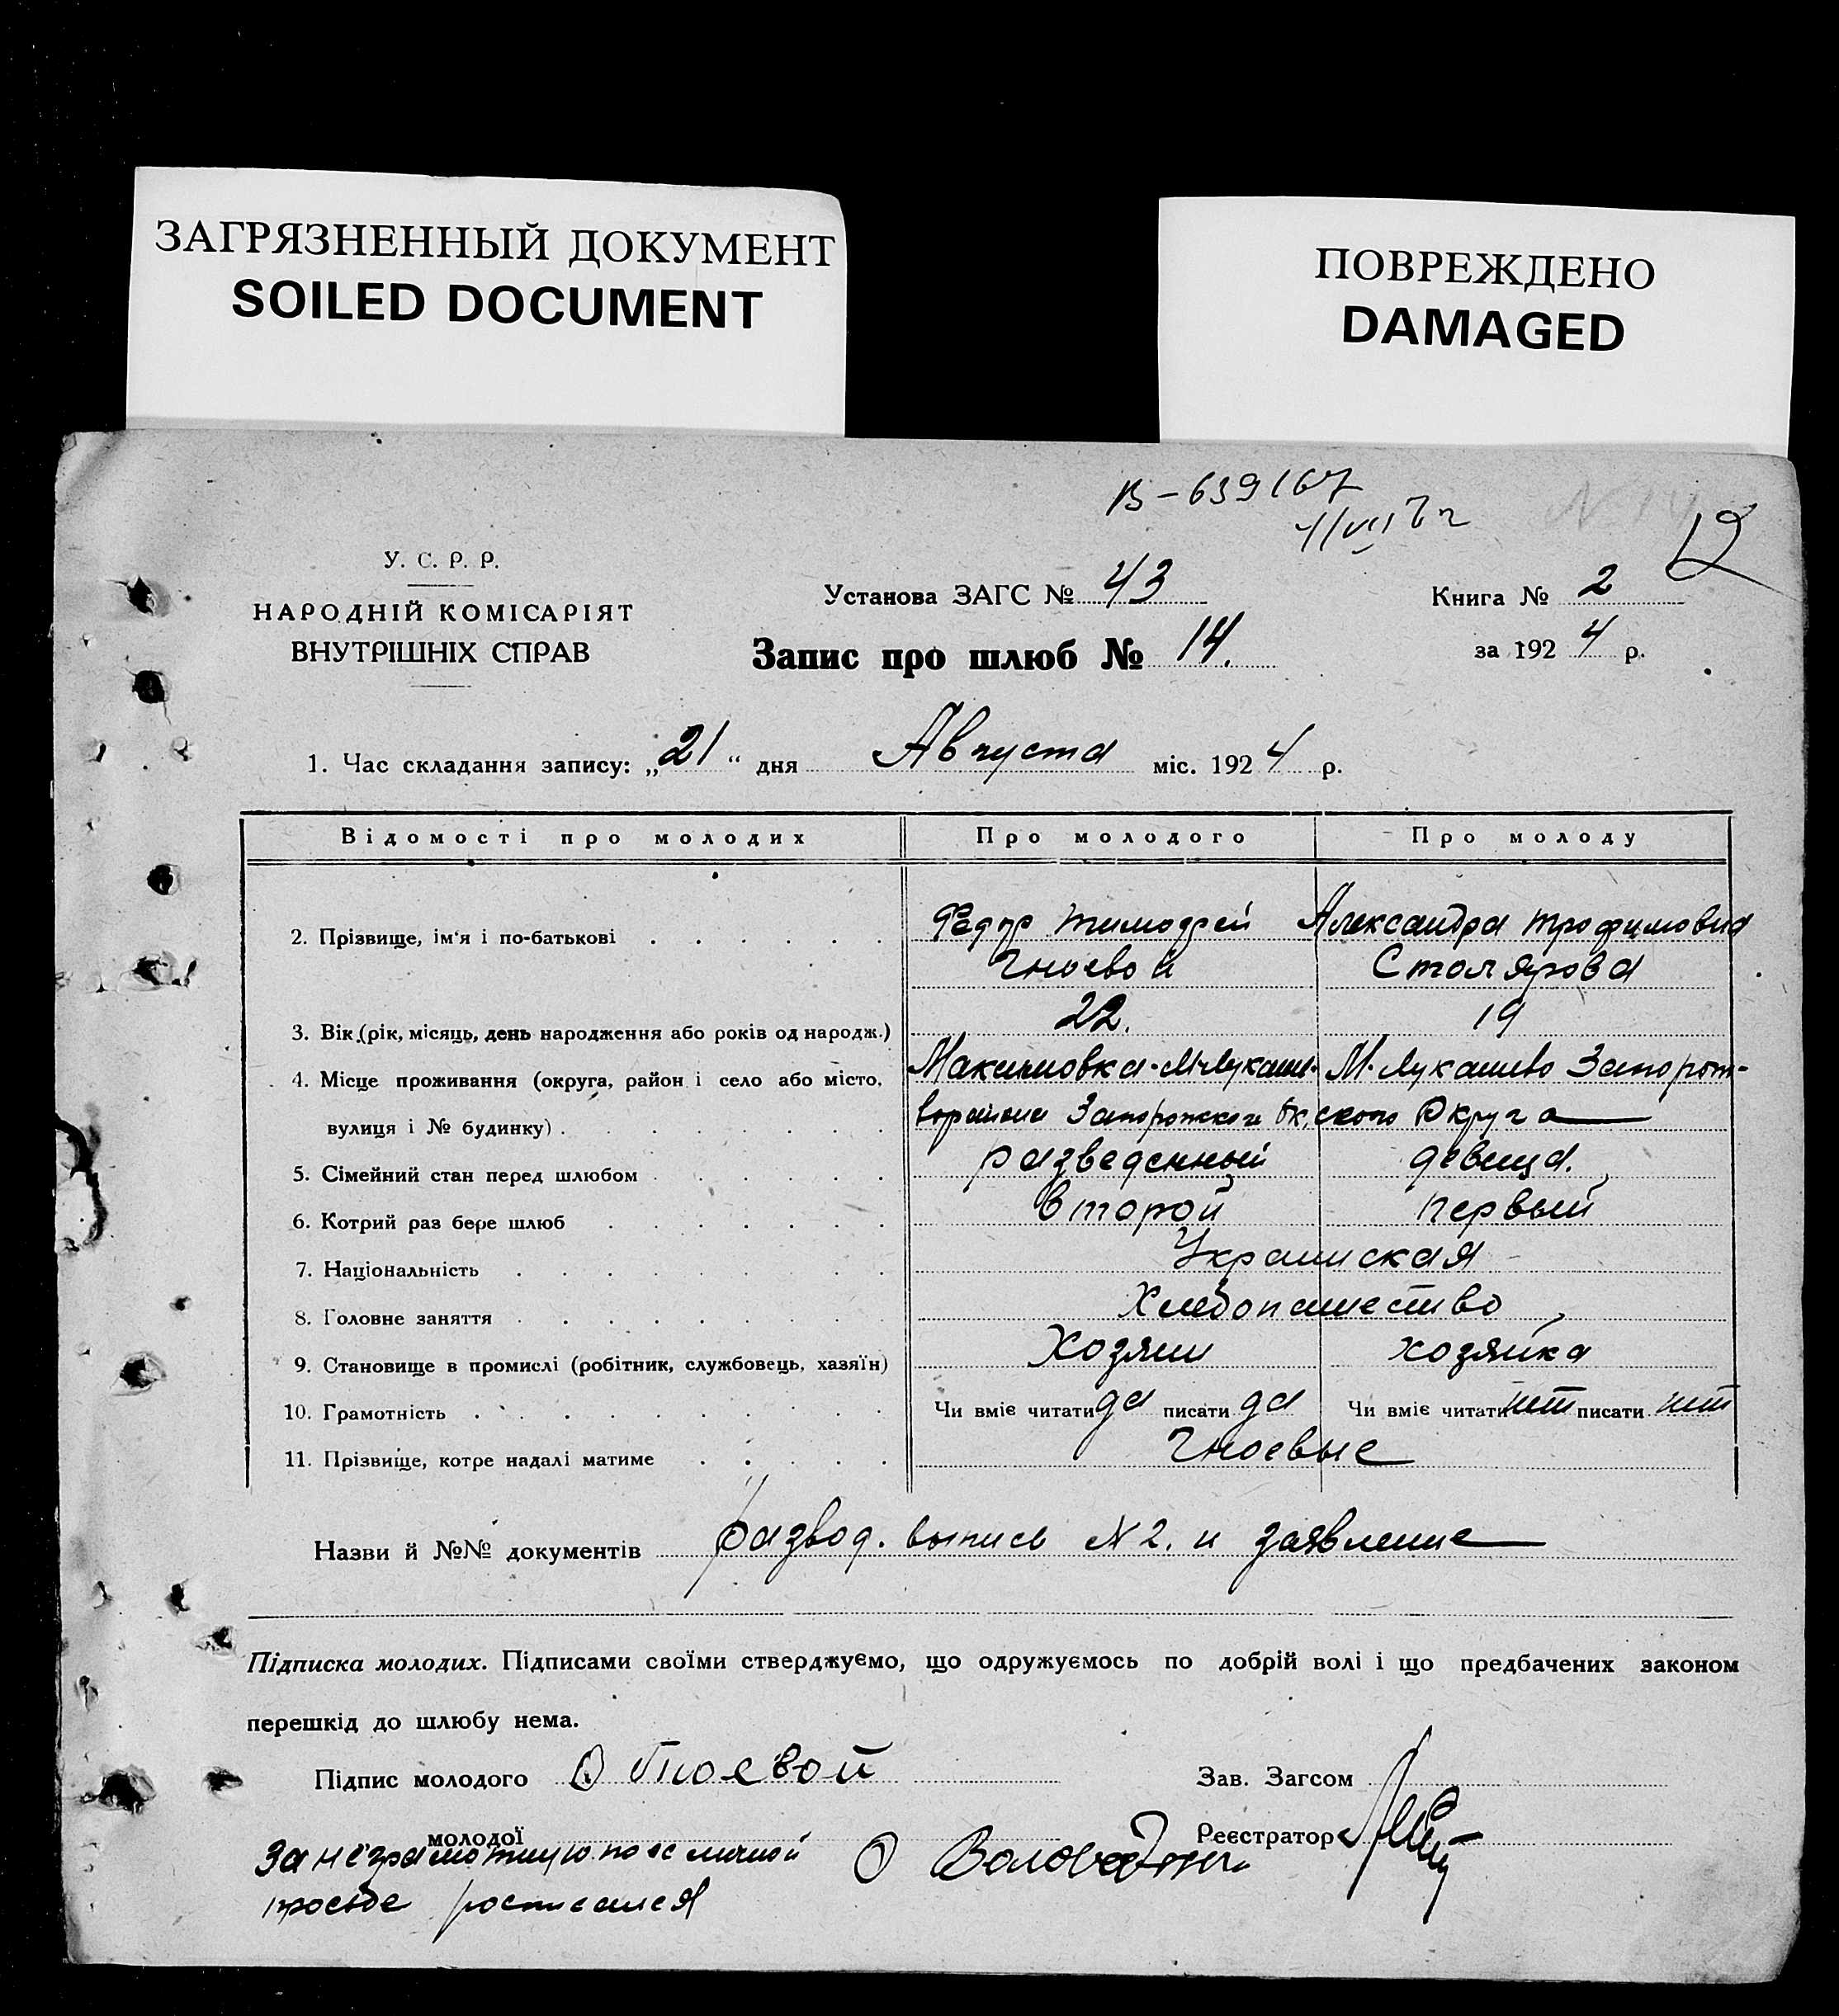 ЗАГРЯЗНЕННЫЙ ДОКУМЕНТ
SOILED DOCUMENT
ПОВРЕЖДЕНО
DAMAGED
В-639167
12
У. С. Р. Р.
НАРОДНІЙ КОМІСАРІЯТ
ВНУТРІШНІХ СПРАВ
Установа ЗАГС № 43
Книга № 2
Запис про шлюб № 14.
за 1924 р.
1. Час складання запису: „21“ дня Августа міс. 1924 р.
Відомості про молодих Про молодого Про молоду
2. Прізвище, ім'я і по-батькові Федор Тимофей Александра Трофимовна
Гноевой Столярова
3. Вік (рік, місяць, день народження або років од народж.) 22. 19
4. Місце проживання (округа, район і село або місто, Максимовка М-Лукаш- М. Лукашево Запорож-
вулиця і № будинку) Запорожского Ок. ского Округа
5. Сімейний стан перед шлюбом разведенный девица.
6. Котрий раз бере шлюб второй первый
7. Національність Украинская
8. Головне заняття Хлебопашество
9. Становище в промислі (робітник, службовець, хазяїн) Хозяин хозяйка
10. Грамотність Чи вміє читати да писати да Чи вміє читати нет писати нет
11. Прізвище, котре надалі матиме Гноевые
Назви й №№ документів развод. выпись № 2. и заявление
Підписка молодих. Підписами своїми стверджуємо, що одружуємось по добрій волі і що предбачених законом
перешкід до шлюбу нема.
Підпис молодого Гноевой Зав. Загсом
молодої Реєстратор
За неграмотную по ее личной
просьбе росписался